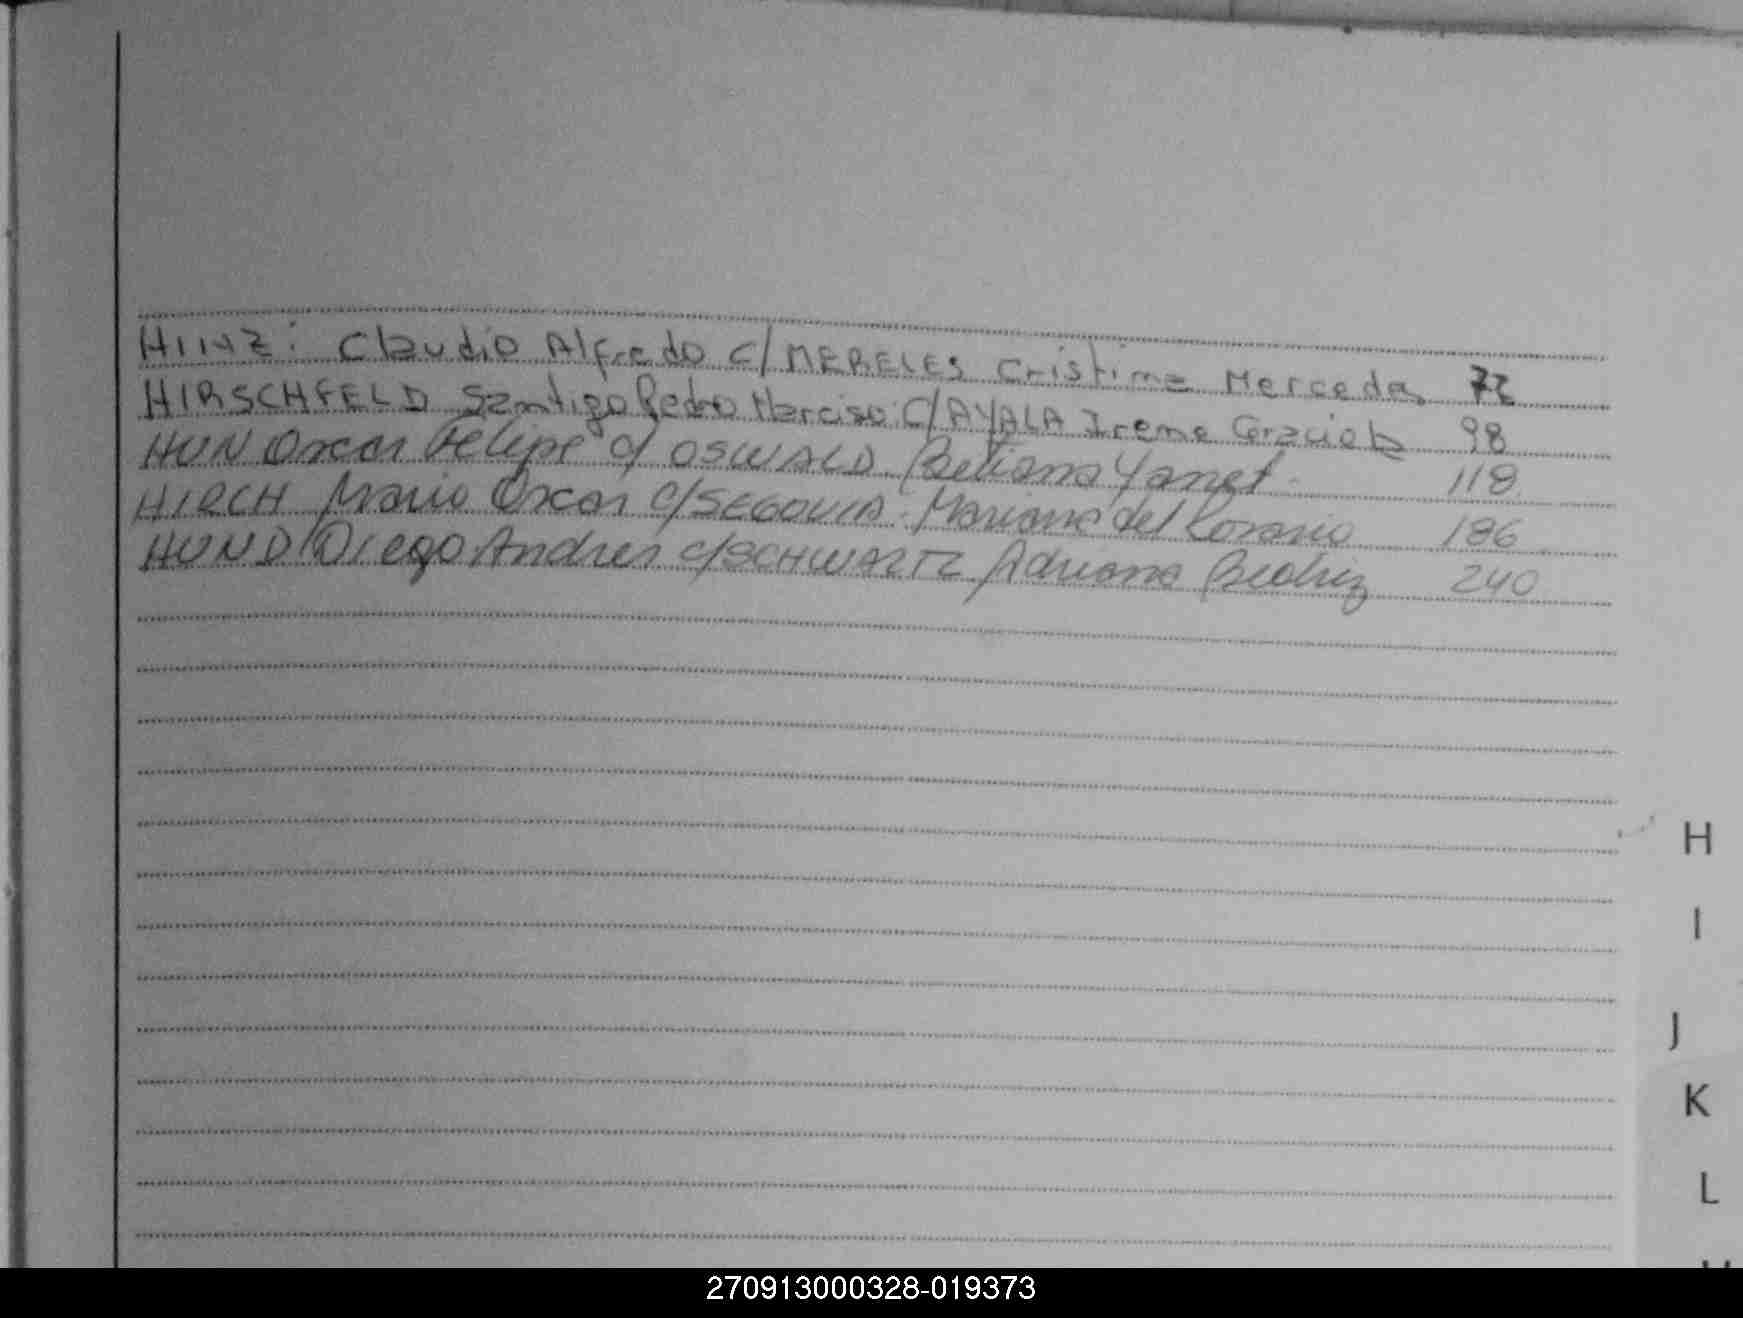 HIINZ: Claudio Alfredo C/ MERELES Cristina Mercedes 72
HIRSCHFELD Santigo Pedro Narciso C/ AYALA Irene Graciela 98
HUN Oscar Felipe c/ OSWALD Betiana Yanet 118
HIRCH Mario Oscar c/ SEGOVIA Mariana del Rosario 186
HUND Diego Andres c/ SCHWARTZ Adriana Beatriz 240
H
I
J
K
L
270913000328-019373